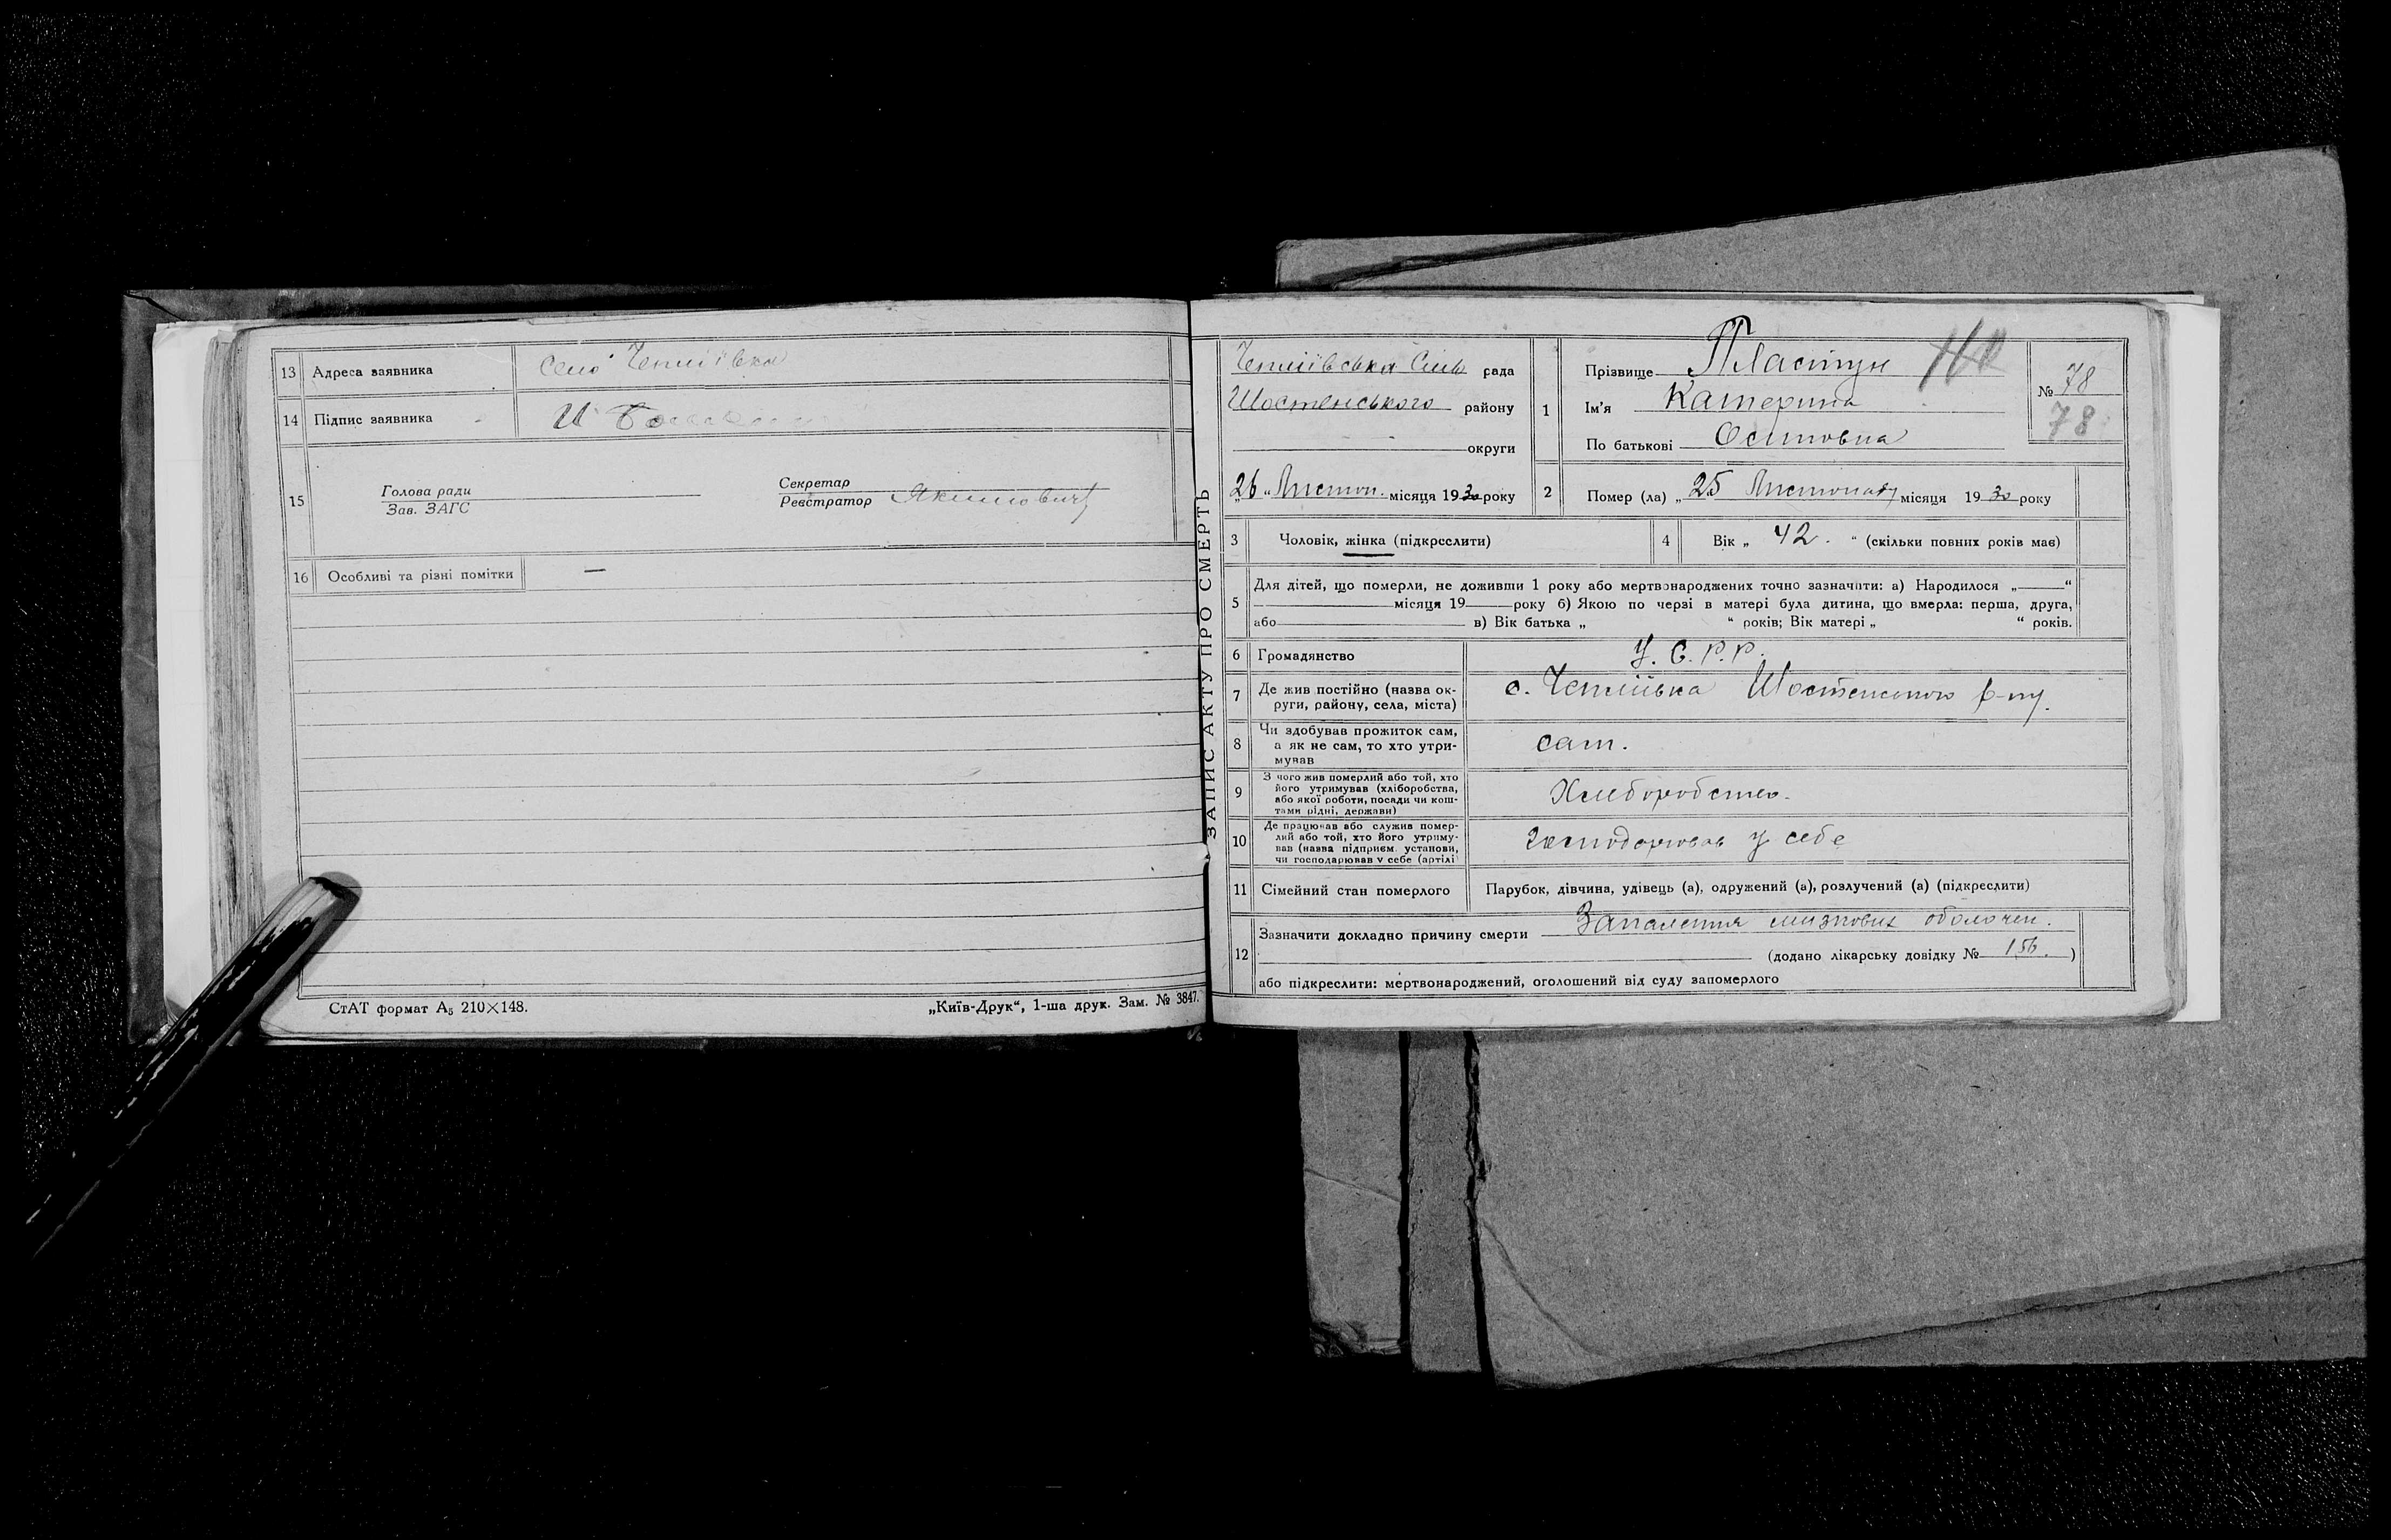 13 Адреса заявника Село Чепліївка
14 Підпис заявника И
15 Голова ради
Зав. ЗАГС
Секретар
Реєстратор Якимович
16 Особливі та різні помітки —
СтАТ формат А5 210×148.
„Київ-Друк“, 1-ша друк. Зам. № 3847.
ЗАПИС АКТУ ПРО СМЕРТЬ
Чепліївська Сіль рада
Шостенського району
округи
„26 „ Листоп. місяця 1930 року
1 Прізвище Пластун
Ім'я Катерина
По батькові Осиповна
№ 78
78
2 Помер (ла) „ 25 Листопаду місяця 1930 року
3 Чоловік, жінка (підкреслити)
4 Вік „ 42. “ (скільки повних років має)
5 Для дітей, що померли, не доживши 1 року або мертвонароджених точно зазначити: а) Народилося „ “
місяця 19 року б) Якою по черзі в матері була дитина, що вмерла: перша, друга,
або в) Вік батька „ “ років; Вік матері „ “ років.
6 Громадянство У. С. Р. Р.
7 Де жив постійно (назва ок-
руги, району, села, міста) с. Чепліївка Шостенського р-ну.
8 Чи здобував прожиток сам,
а як не сам, то хто утри-
мував сам.
9 З чого жив померлий або той, хто
його утримував (хліборобства,
або якої роботи, посади чи кош-
тами рідні, держави) Хліборобство.
10 Де працював або служив помер-
лий або той, хто його утриму-
вав (назва підприєм. установи,
чи господарював у себе (артілі) господарював у себе
11 Сімейний стан померлого Парубок, дівчина, удівець (а), одружений (а), розлучений (а) (підкреслити)
12 Зазначити докладно причину смерти Запалення мизкових оболочен.
(додано лікарську довідку № 156. )
або підкреслити: мертвонароджений, оголошений від суду запомерлого